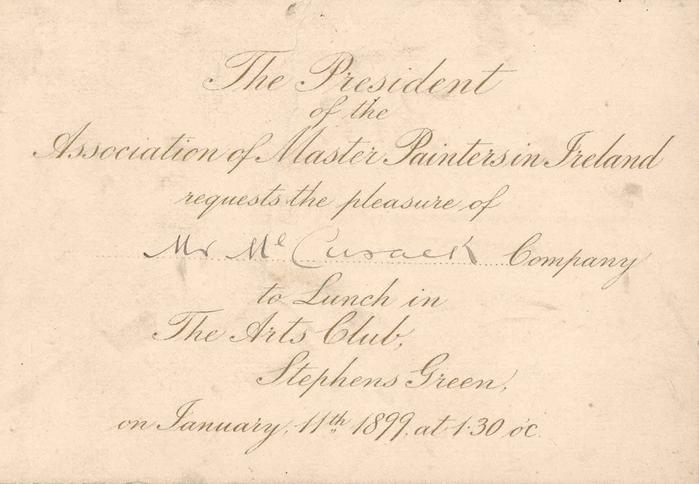 The President
of the
Association of Master Painters in Ireland
requests the pleasure of
Mr McCusack Company
to Lunch in
The Arts Club,
Stephens Green,
on January, 11th 1899, at 1·30 o'c.